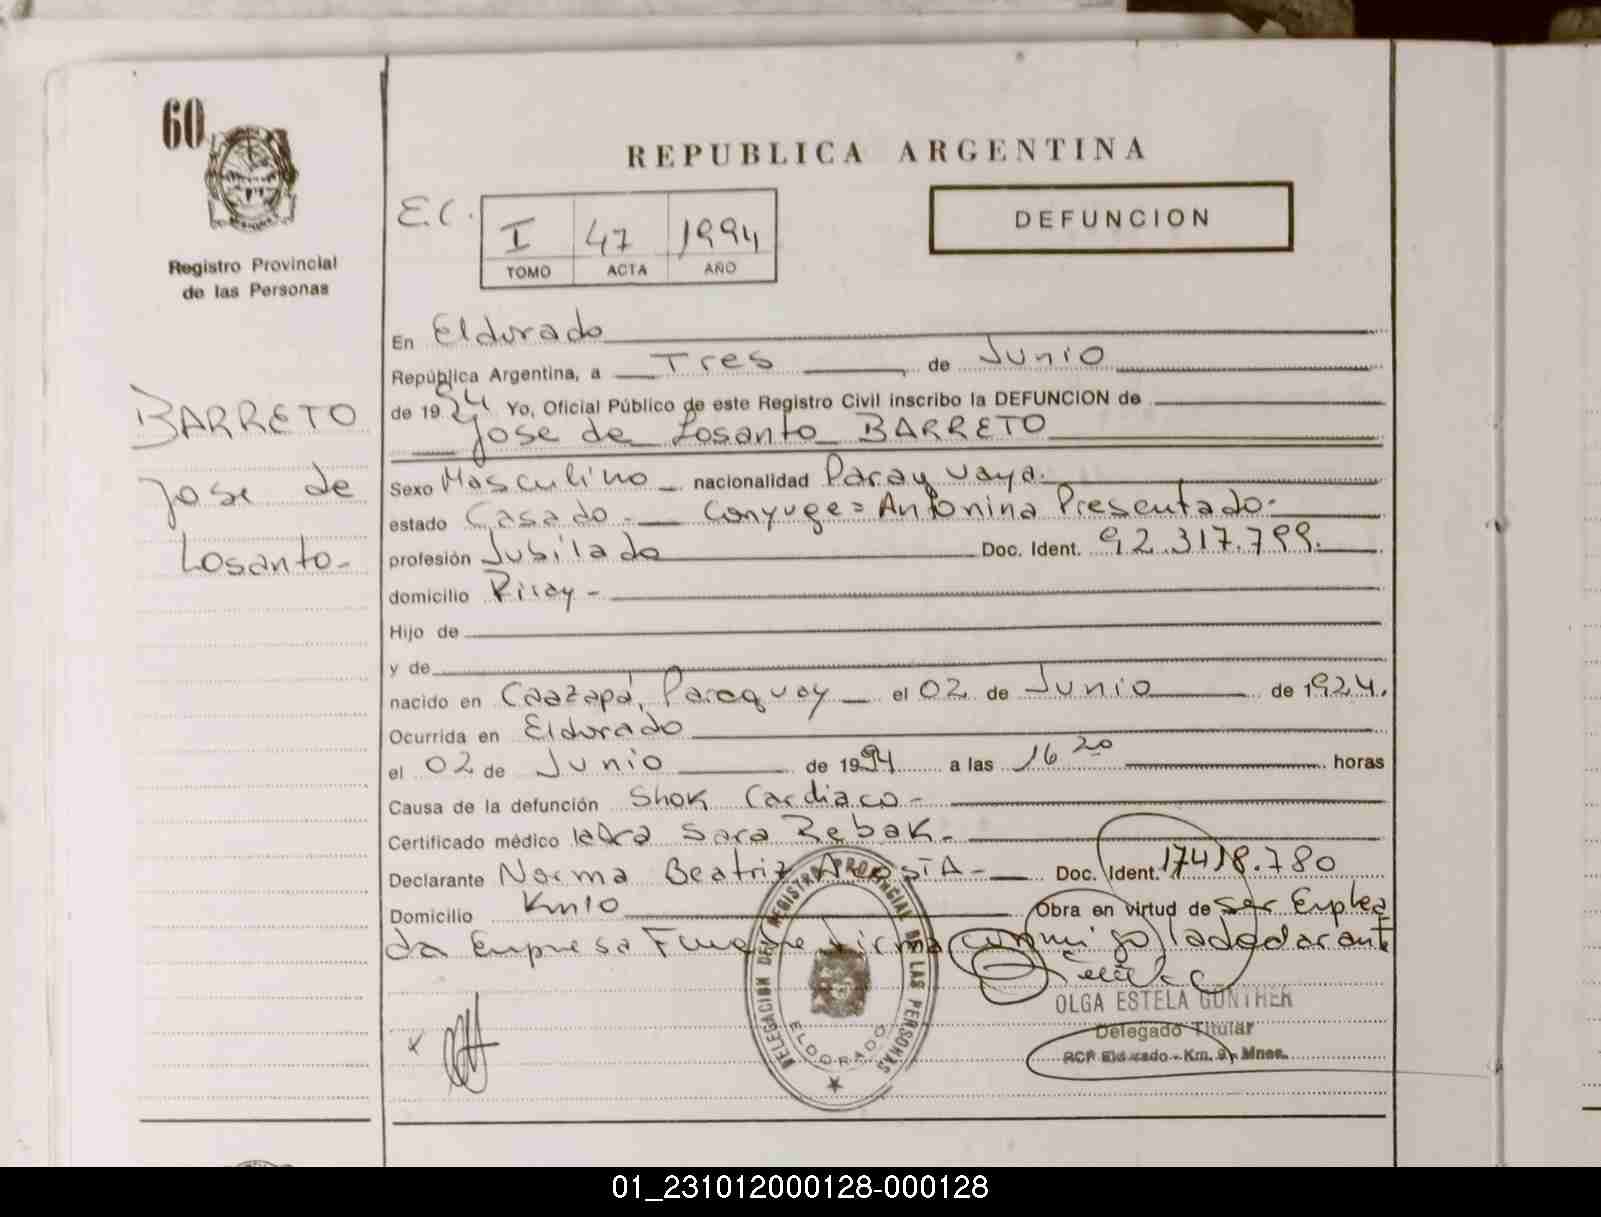 60
Registro Provincial
de las Personas
BARRETO
Jose de
Losanto-
REPUBLICA ARGENTINA
E.C.
I 47 1994
TOMO ACTA AÑO
DEFUNCION
En Eldorado
República Argentina, a Tres de Junio
de 1994 Yo, Oficial Público de este Registro Civil inscribo la DEFUNCION de
Jose de Losanto BARRETO
Sexo Masculino nacionalidad Paraguaya.
estado Casado - Conyuge= Antonina Presentado-
profesión Jubilado Doc. Ident. 92.317.799.
domicilio Piray -
Hijo de
y de
nacido en Caazapá, Paraguay el 02 de Junio de 1924.
Ocurrida en Eldorado
el 02 de Junio de 1994 a las 16 20 horas
Causa de la defunción Shok Cardiaco-
Certificado médico la Dra Sara Rebak.
Declarante Norma Beatriz Acosta- Doc. Ident. 17418.780
Domicilio Km10 Obra en virtud de ser Emplea
da Empresa Funebre firma conmigo la declarante
OLGA ESTELA GUNTHER
Delegado Titular
RCP Eldorado - Km. 9 - Mnes.
DELEGACION DEL REGISTRO PROVINCIAL DE LAS PERSONAS
ELDORADO
01_231012000128-000128